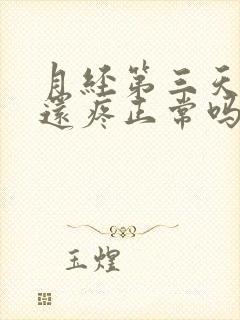 月經第三天
還疼正常吗
玉煌